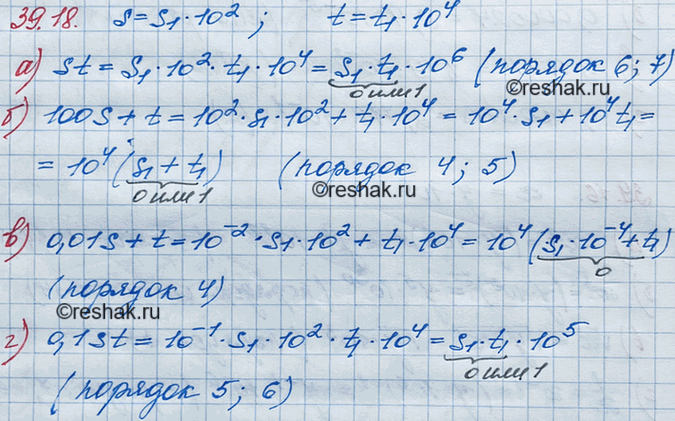 39.18. s = s₁·10² ; t = t₁·10⁴
а) st = s₁·10²·t₁·10⁴ = s₁·t₁·10⁶ (порядок 6; 7)
0 или 1
б) 100s + t = 10²·s₁·10² + t₁·10⁴ = 10⁴·s₁ + 10⁴t₁ =
©reshak.ru
= 10⁴(s₁ + t₁) (порядок 4; 5)
0 или 1
©reshak.ru
в) 0,01s + t = 10⁻²·s₁·10² + t₁·10⁴ = 10⁴(s₁·10⁻⁴ + t₁)
0
(порядок 4)
©reshak.ru
г) 0,1st = 10⁻¹·s₁·10²·t₁·10⁴ = s₁·t₁·10⁵
0 или 1
(порядок 5; 6)
©reshak.ru